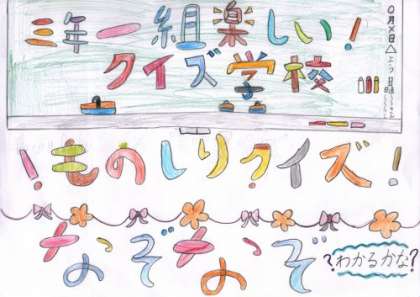 三年一組楽しい!
クイズ学校
!ものしりクイズ!
なぞなぞ
?わかるかな?